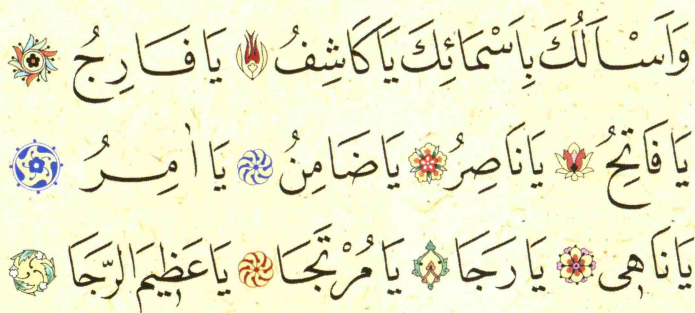 وَاَسْاَلُكَ بِاَسْمَائِكَ يَا كَاشِفُ يَا فَارِجُ
يَا فَاتِحُ يَا نَاصِرُ يَا ضَامِنُ يَا اٰمِرُ
يَا نَاهِى يَا رَجَا يَا مُرْتَجَا يَا عَظِيمَ الرَّجَا